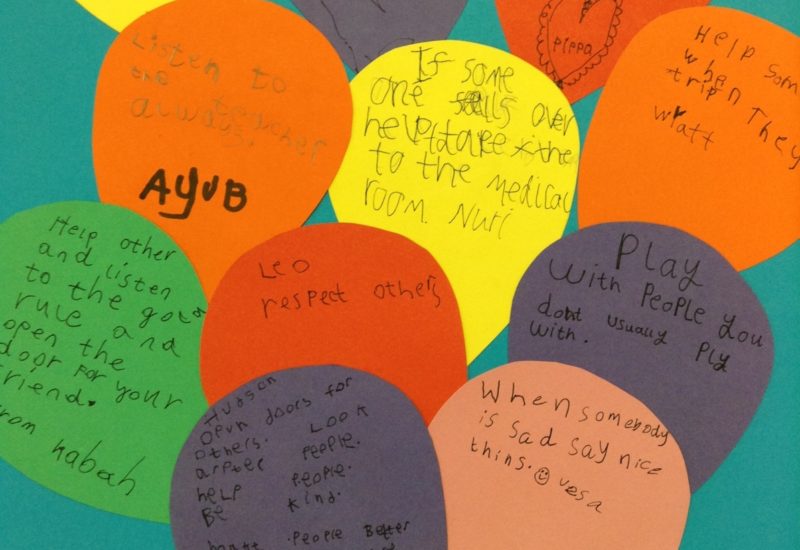 Listen to
the teacher
always.
AYUB
PIPPA
If some
one over
help take
to the medical
room. Nuri
Help som
when They
trip
Wyatt
Help other
and listen
to the gold
rule and
open the
door for your
friend.
from Kabah
Leo
respect others
Play
with people you
dont usually Ply
with.
Hudson
Open doors for
others. Look
arfter people.
help people.
Be kind.
People Better
When somebody
is sad say nice
thins. ☺ vesa